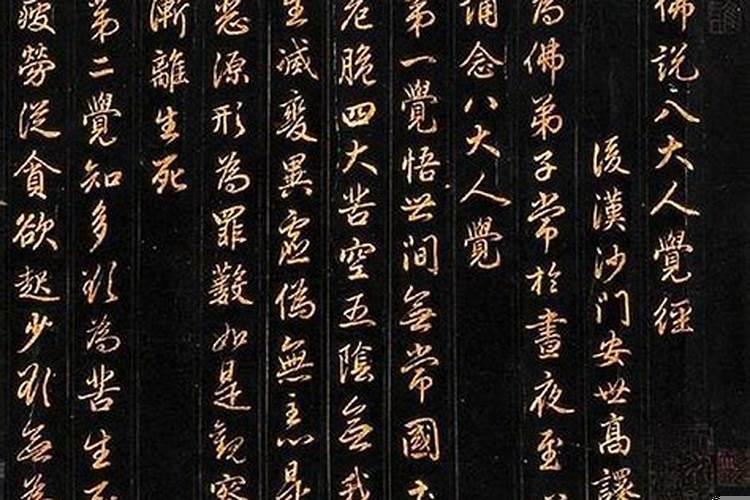 佛說八大人覺經
後漢沙門安世高譯
為佛弟子常於晝夜至
誦念八大人覺
第一覺悟世間無常國土
危脆四大苦空五陰無我
生滅變異虛偽無主心是
惡源形為罪藪如是觀察
漸離生死
第二覺知多欲為苦生死
疲勞從貪欲起少欲無為